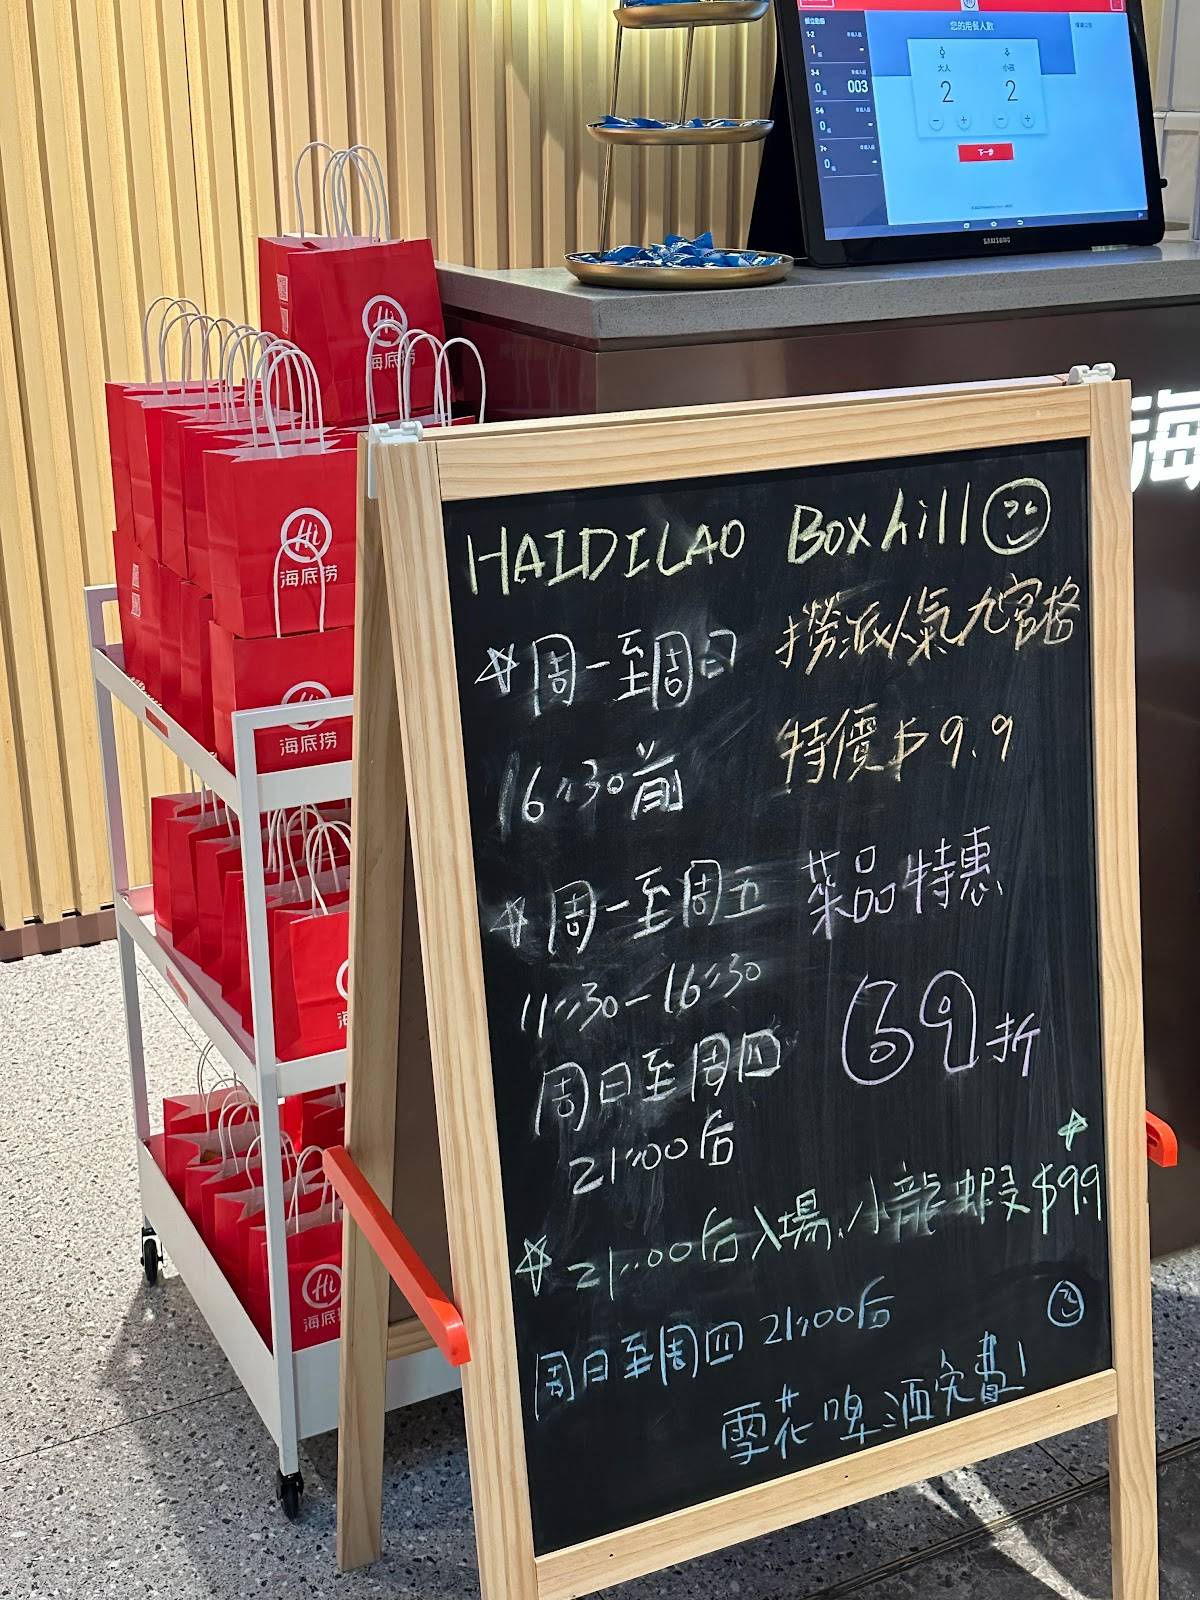 您的用餐人數
大人
小孩
2
2
下一步
1-2
1
3-4
0
003
5-6
0
7+
0
SAMSUNG
Hi
海底捞
Hi
海底捞
Hi
海底捞
Hi
海底捞
海
HAIDILAO Boxhill
周一至周日 撈派人氣九宮格
16:30前 特價$9.9
周一至周五 菜品特惠
11:30-16:30
69折
周日至周四
21:00后
21:00后入場,小龍蝦$9.9
周日至周四 21:00后
雪花啤酒免費!